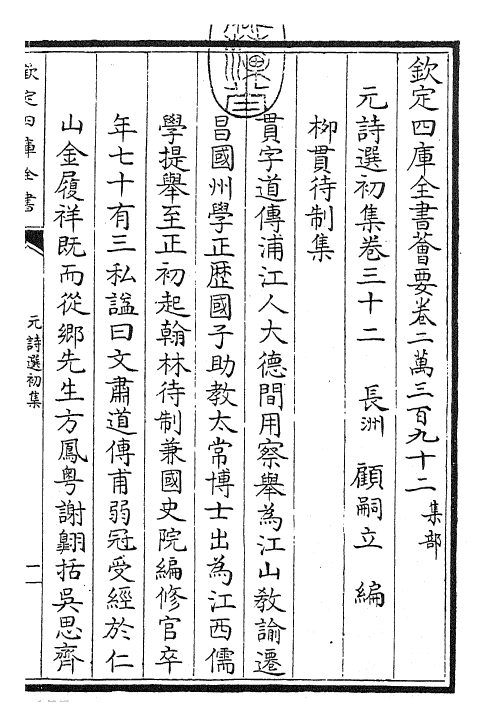 欽定四庫全書薈要卷二萬三百九十二 集部
元詩選初集卷三十二 長洲 顧嗣立 編
柳貫待制集
貫字道傳浦江人大德間用察舉為江山教諭遷
昌國州學正歷國子助教太常博士出為江西儒
學提舉至正初起翰林待制兼國史院編修官卒
年七十有三私諡曰文肅道傳甫弱冠受經於仁
山金履祥既而從鄉先生方鳳粵謝翱括吳思齊
欽定四庫全書
元詩選初集
一